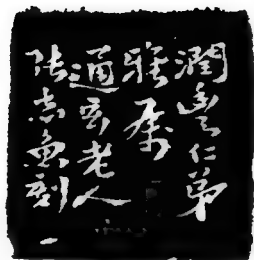 潤畬仁弟
雅屬
通玄老人
張志魚刻